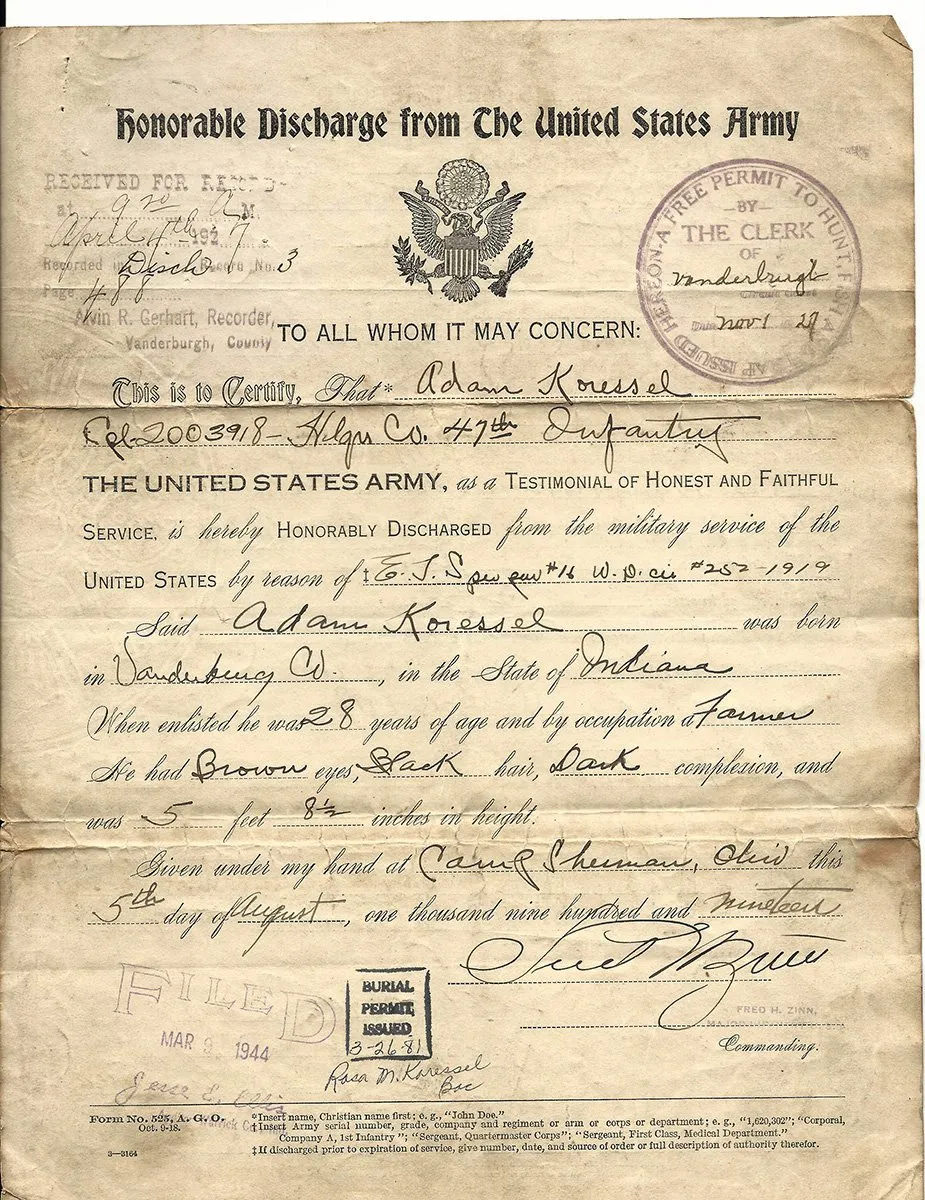 Honorable Discharge from The United States Army
RECEIVED FOR RECORD
at 9 00 A M
April 4th 1927.
Recorded in Disch Record No. 3
Page 488
Alvin R. Gerhart, Recorder,
Vanderburgh, County
HEREON A FREE PERMIT TO HUNT, FISH
ISSUED
—BY—
THE CLERK
OF
Vanderburgh
Nov 1 27
TO ALL WHOM IT MAY CONCERN:
This is to Certify, That* Adam Koressel
Cpl-2003918- Hdqrs Co. 47th Infantry
THE UNITED STATES ARMY, as a TESTIMONIAL OF HONEST AND FAITHFUL
SERVICE, is hereby HONORABLY DISCHARGED from the military service of the
UNITED STATES by reason of ‡E.T.S per par #16 W.D. cir #252-1919
Said Adam Koressel was born
in Vanderburg Co., in the State of Indiana
When enlisted he was 28 years of age and by occupation a Farmer
He had Brown eyes, Black hair, Dark complexion, and
was 5 feet 8½ inches in height.
Given under my hand at Camp Sherman, Ohio this
5th day of August, one thousand nine hundred and nineteen
FRED H. ZINN,
Commanding.
FILED
MAR 1944
Jesse E. Ellis
BURIAL
PERMIT
ISSUED
3-26-81
Rosa M. Koressel
Form No. 525, A. G. O.
Oct. 9-18.
3—3164
*Insert name, Christian name first; e. g., "John Doe."
†Insert Army serial number, grade, company and regiment or arm or corps or department; e. g., "1,620,302"; "Corporal,
Company A, 1st Infantry"; "Sergeant, Quartermaster Corps"; "Sergeant, First Class, Medical Department."
‡If discharged prior to expiration of service, give number, date, and source of order or full description of authority therefor.